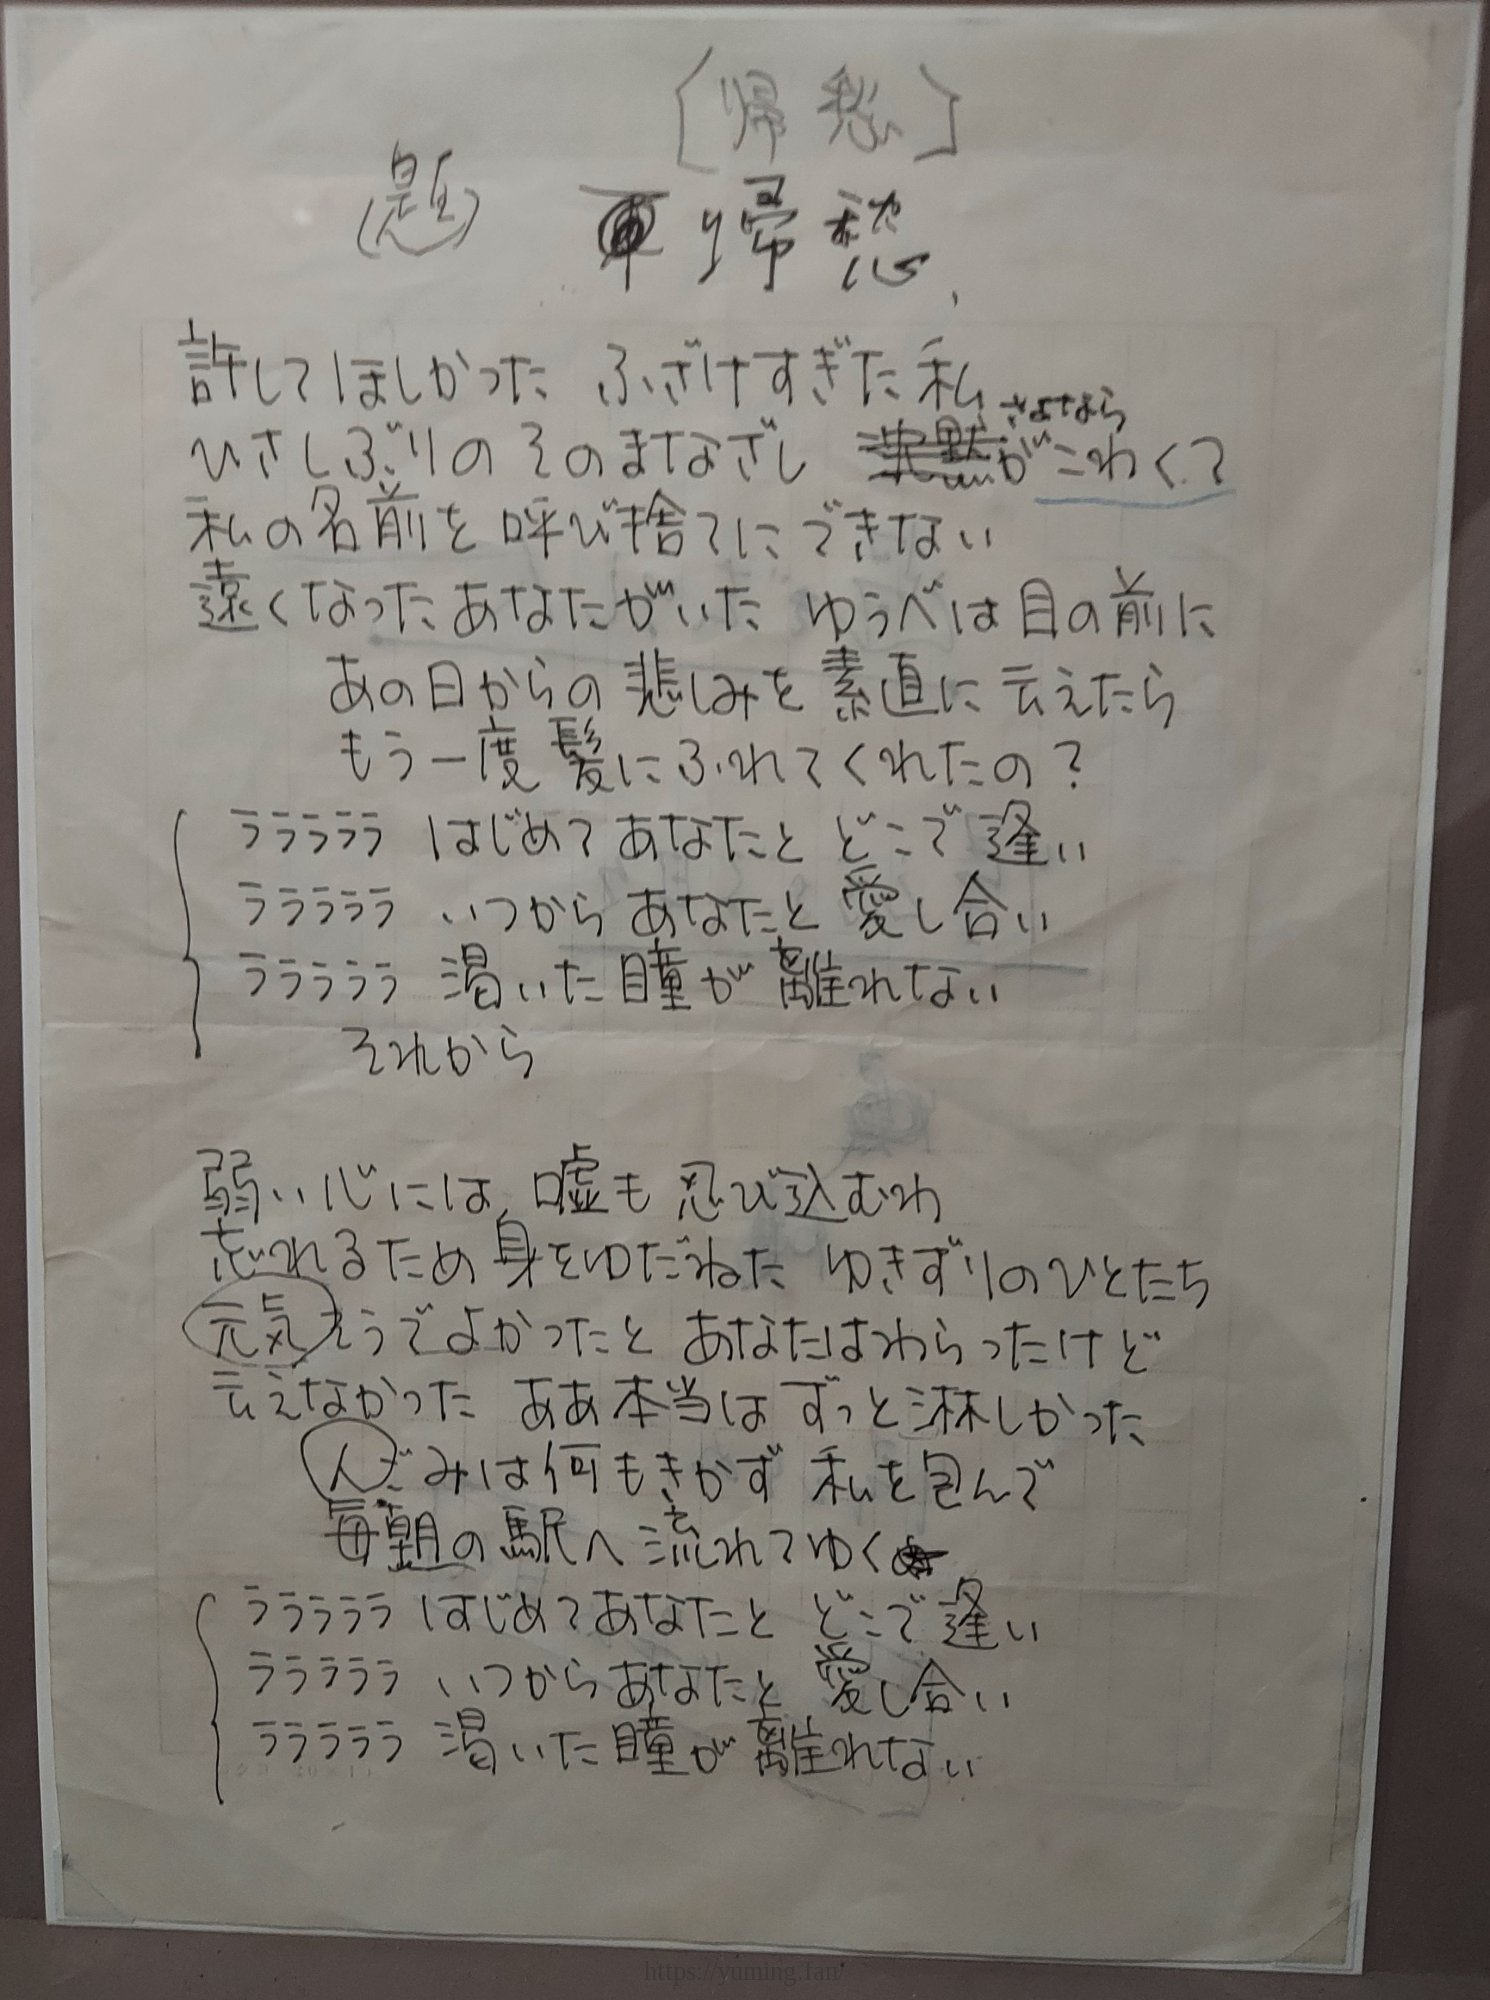 〔帰愁〕
(題) 帰愁
許してほしかった ふざけすぎた私
さよなら
ひさしぶりのそのまなざし 沈黙がこわくて
私の名前を呼び捨てにできない
遠くなったあなたがいた ゆうべは目の前に
あの日からの悲しみを素直に云えたら
もう一度髪にふれてくれたの?
ラララララ はじめてあなたと どこで逢い
ラララララ いつからあなたと 愛し合い
ラララララ 渇いた瞳が離れない
それから
弱い心には 嘘も忍び込むわ
忘れるため身をゆだねた ゆきずりのひとたち
元気そうでよかったと あなたはわらったけど
云えなかった ああ本当は ずっと淋しかった
人ごみは何もきかず 私を包んで
毎朝の駅へ流れてゆく
ラララララ はじめてあなたと どこで逢い
ラララララ いつからあなたと 愛し合い
ラララララ 渇いた瞳が離れない
https://yuming.fan/